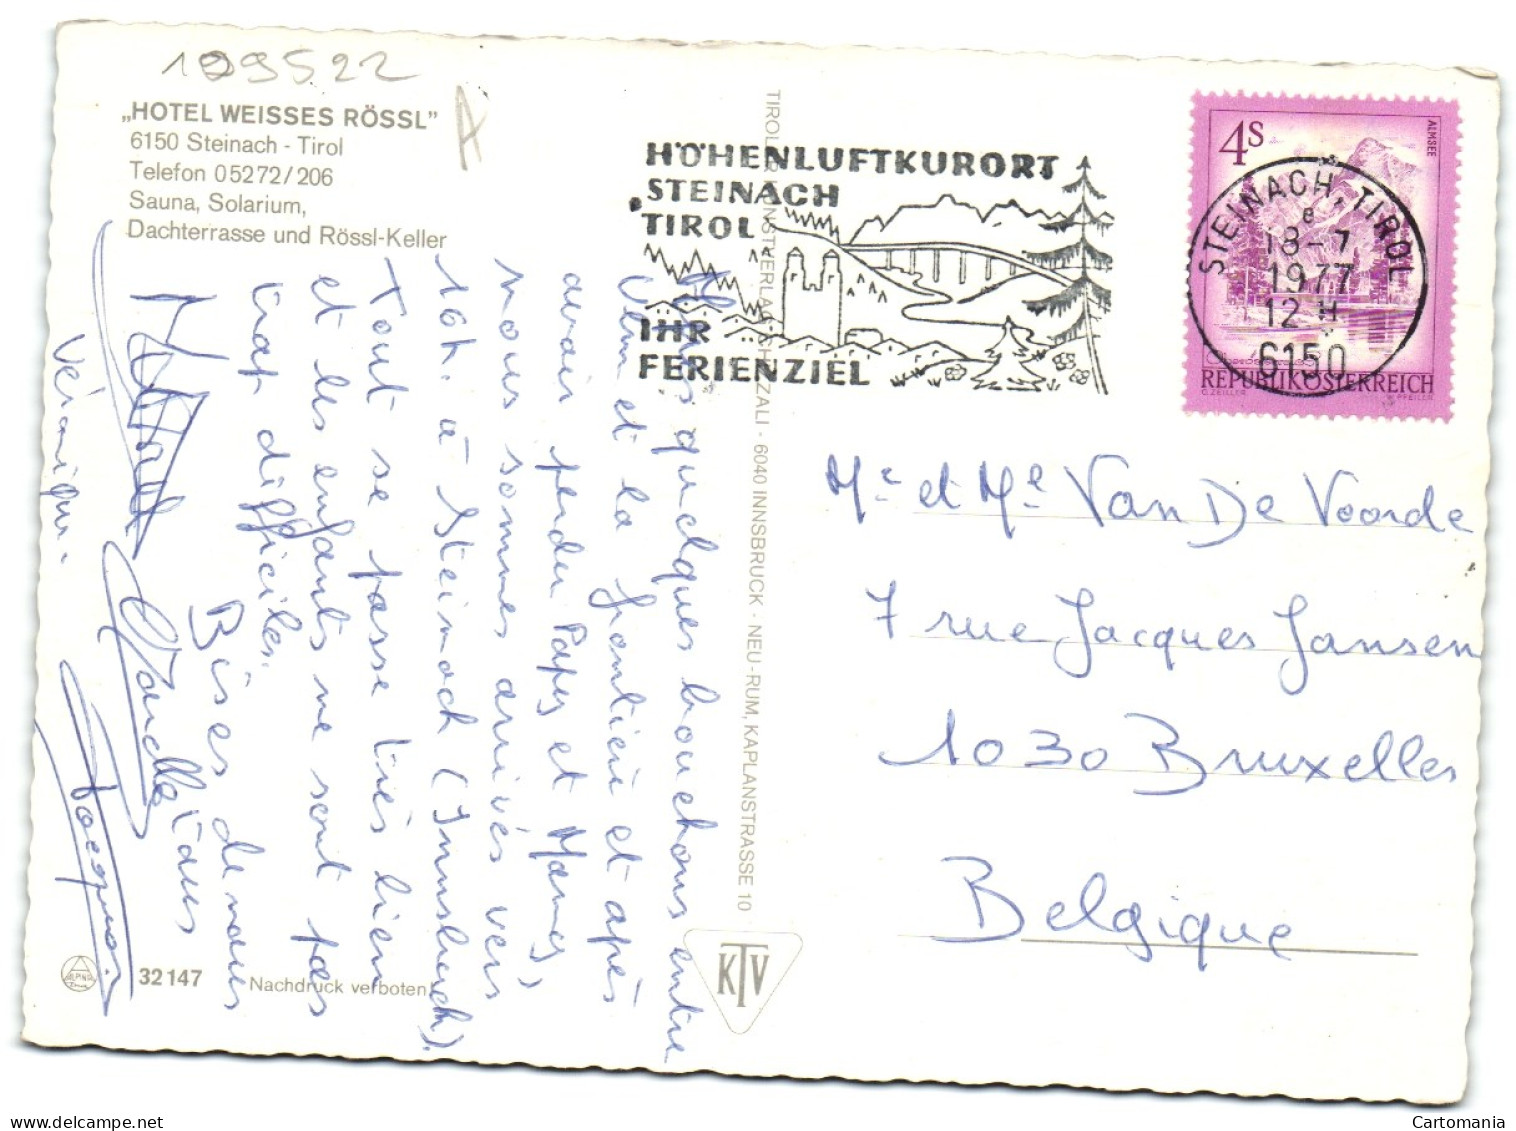 109522
A
„HOTEL WEISSES RÖSSL”
6150 Steinach - Tirol
Telefon 05272/206
Sauna, Solarium,
Dachterrasse und Rössl-Keller
HÖHENLUFTKURORT
STEINACH
TIROL
IHR
FERIENZIEL
4S
ALMSEE
REPUBLIK ÖSTERREICH
STEINACH, TIROL
e
18-7
1977
12 H
6150
Après quelques bouchons entre
Ulm et la frontière et après
avoir perdu Papy et Mamy,
nous sommes arrivés vers
16h. à Steinach (Innsbruck).
Tout se passe très bien
et les enfants ne sont pas
trop difficiles.
Bises de nous
tous
Véronique
Mr et Me Van De Voorde
7 rue Jacques Jansen
1030 Bruxelles
Belgique
TIROLER KUNSTVERLAG CHIZZALI · 6040 INNSBRUCK · NEU-RUM, KAPLANSTRASSE 10
KTV
32147
Nachdruck verboten!
Cartomania
delcampe.net